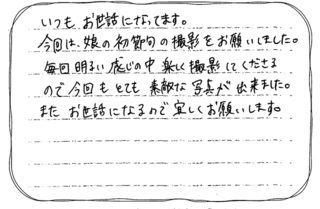 いつも お世話になってます。
今回は、娘の初節句の撮影をお願いしました。
毎回明るい感じの中 楽しく撮影してくださる
ので今回も とても 素敵な写真が 出来ました。
また お世話になるので 宜しくお願いします。